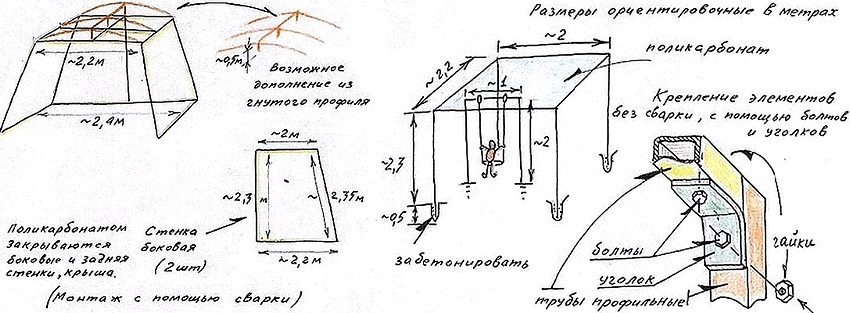 Размеры ориентировочные в метрах
~2,2м
~0,5м
Возможное
дополнение из
гнутого профиля
~2,4м
~2м
~2,3 м
~ 2,35м
~2,2м
Поликарбонатом
закрываются
боковые и задняя
стенки, крыша.
Стенка
боковая
(2шт)
(Монтаж с помощью сварки)
~2
~2,2
поликарбонат
~1
~2
~2,3
~0,5
забетонировать
Крепление элементов
без сварки, с помощью болтов
и уголков
болты
уголок
трубы профильные
гайки